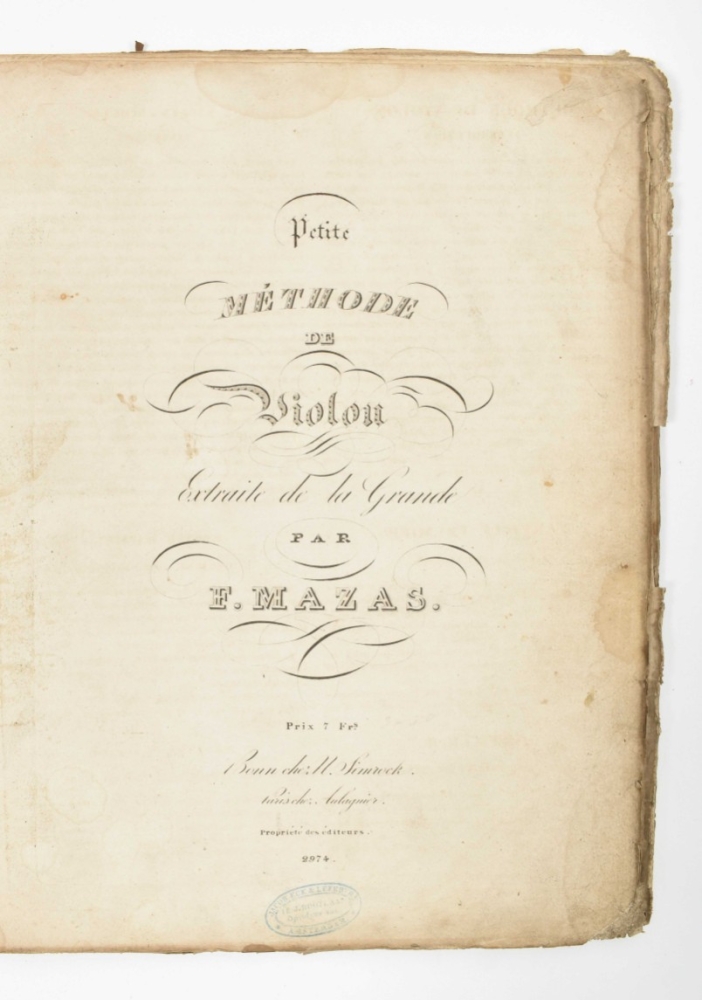 Petite
MÉTHODE
DE
Violon
Extraite de la Grande
PAR
F. MAZAS.
Prix 7 Frs
Bonn chez N. Simrock.
Paris chez Aulagnier.
Propriété des éditeurs.
2974.
AMSTERDAM